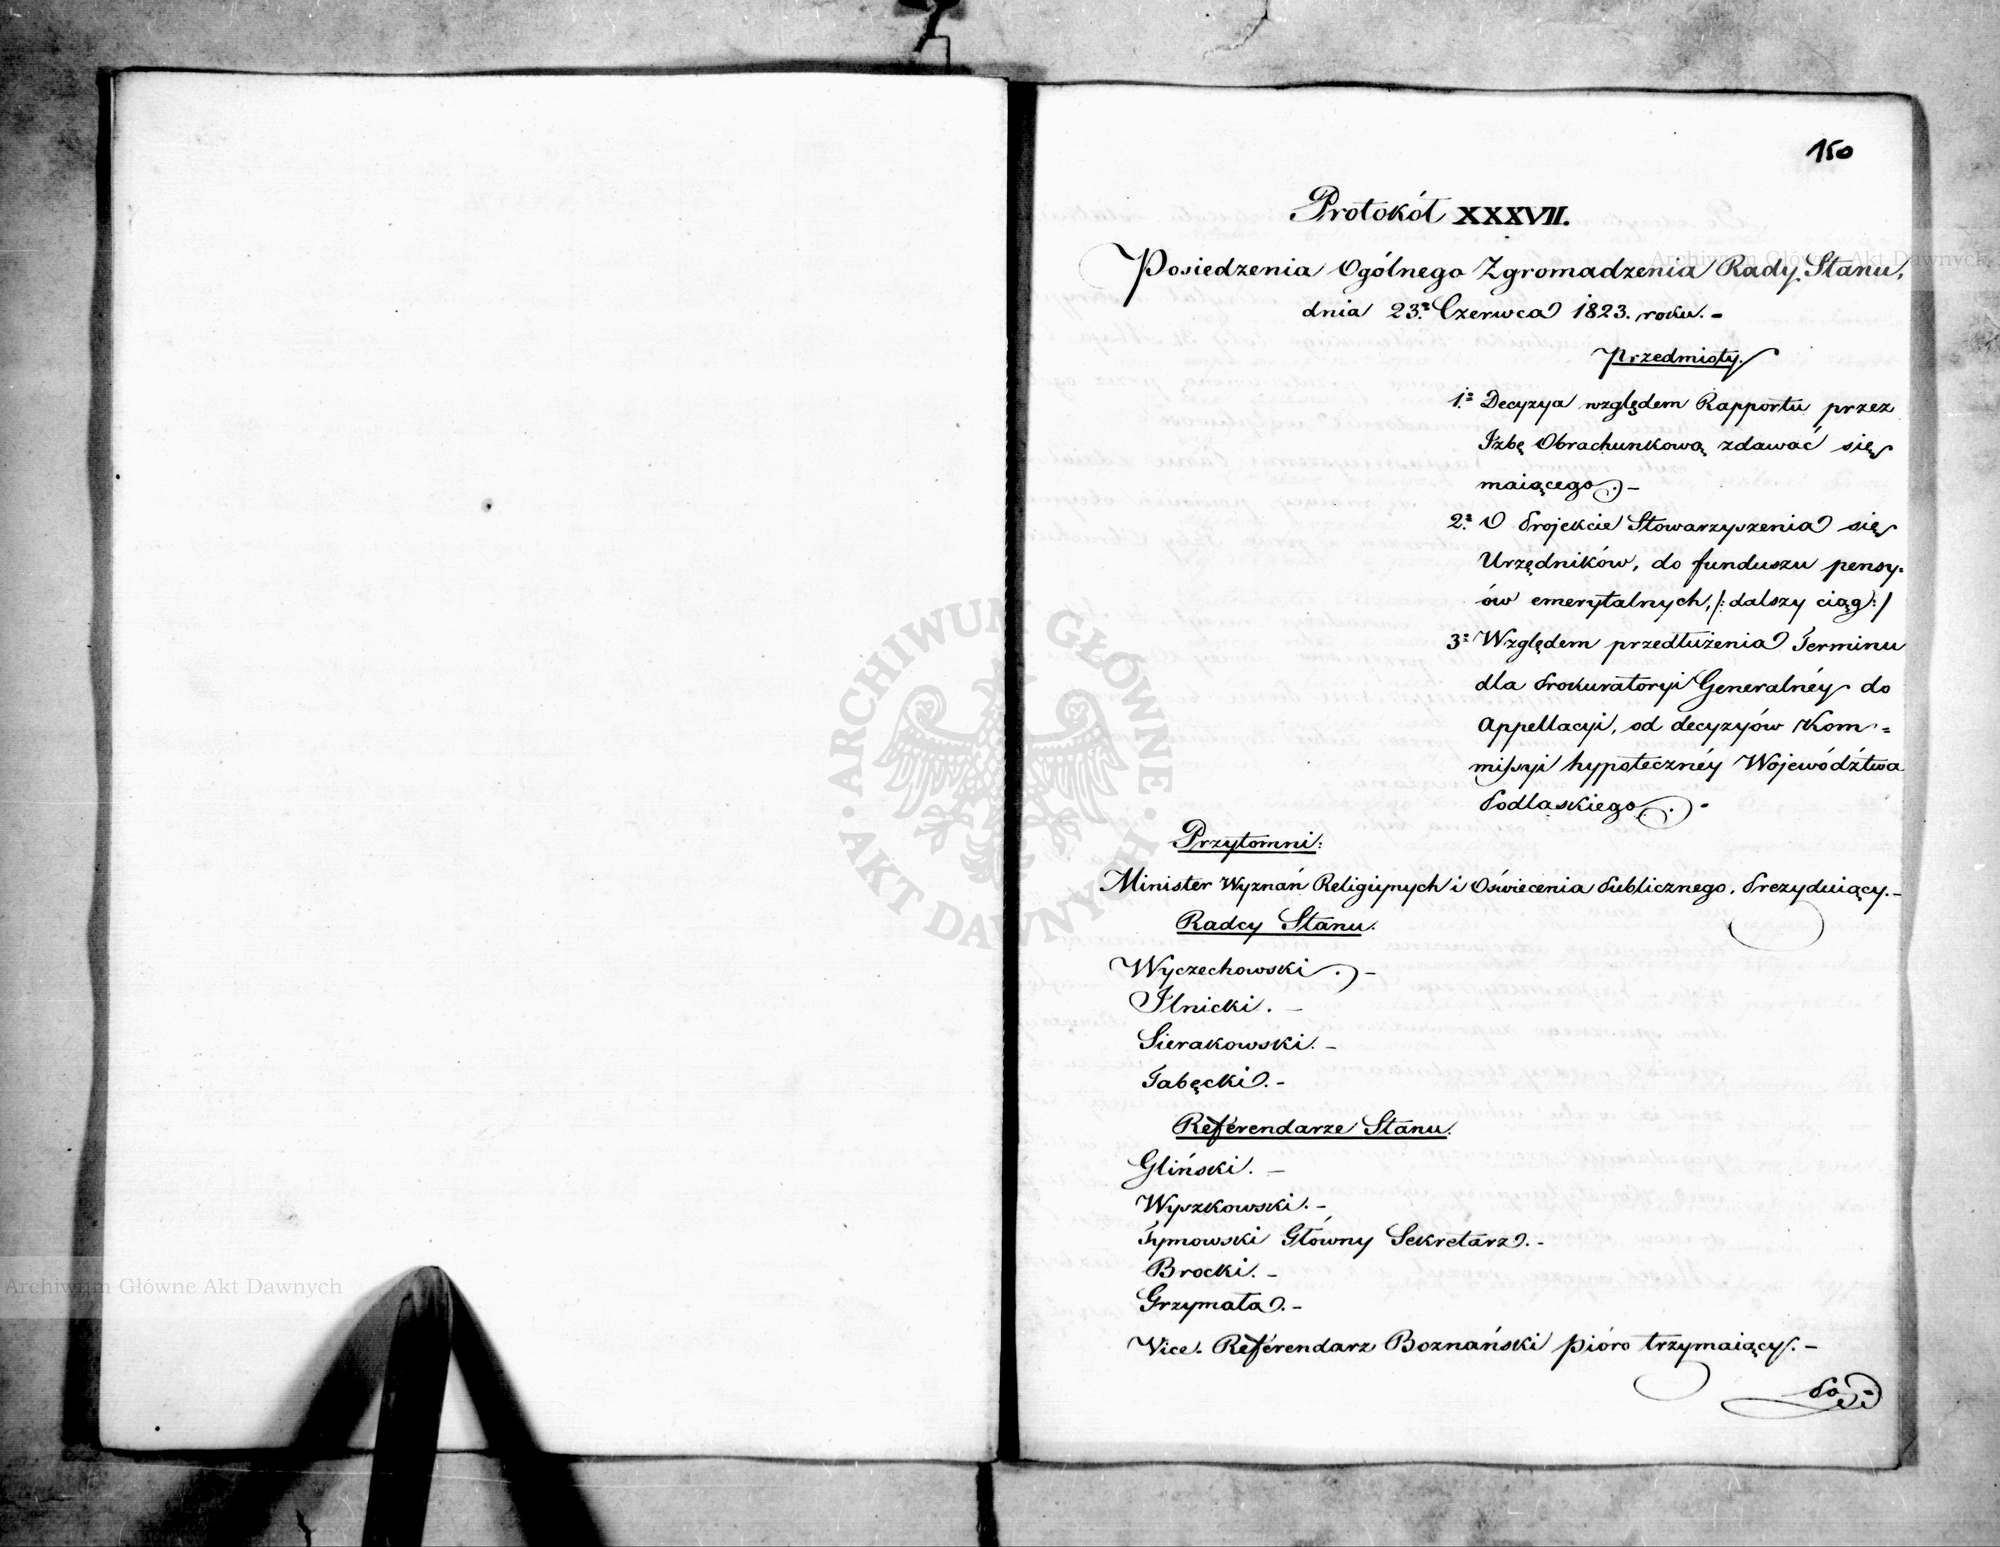 150
Protokół XXXVII.
Posiedzenia Ogólnego Zgromadzenia Rady Stanu,
dnia 23º Czerwca 1823. roku. -
Przedmioty.
1º Decyzya względem Rapportu przez
Izbę Obrachunkową zdawać się
maiącego. -
2º O Projekcie Stowarzyszenia się
Urzędników, do funduszu pensy-
ów emerytalnych, /: dalszy ciąg :/
3º Względem przedłużenia Terminu
dla Prokuratoryi Generalnéy do
Appellacyi, od decyzyów Kom=
missyi hypotecznéy Województwa
Podlaskiego. -
Przytomni:
Minister Wyznań Religiynych i Oświecenia Publicznego, Prezyduiący. -
Radcy Stanu.
Wyczechowski. -
Ilnicki. -
Sierakowski. -
Tabęcki. -
Referendarze Stanu.
Gliński. -
Wyszkowski. -
Tymowski Główny Sekretarz. -
Brocki. -
Grzymała. -
Vice. Referendarz Boznański pióro trzymaiący. -
Po -
ARCHIWUM GŁÓWNE AKT DAWNYCH
Archiwum Główne Akt Dawnych
Archiwum Główne Akt Dawnych